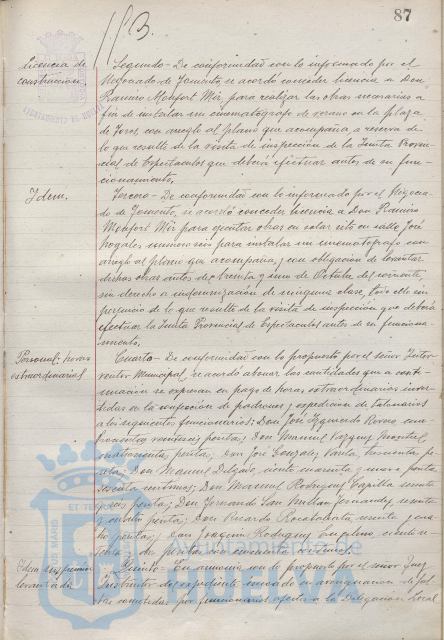 113.
87
Licencia de
construcción.
Segundo- De conformidad con lo informado por el
Negociado de Fomento se acordó conceder licencia a Don
Ramiro Monfort Mir, para realizar las obras necesarias a
fin de instalar un cinematógrafo de verano en la plaza
de Toros, con arreglo al plano que acompaña, a reserva de
lo que resulte de la visita de inspección de la Junta Provin-
cial de Espectaculos que deberá efectuar antes de su fun-
cionamiento.
Idem.
Tercero- De conformidad con lo informado por el Negocia-
do de Fomento, se acordó conceder licencia a Don Ramiro
Monfort Mir para ejecutar obras en solar sito en calle José
Nogales número seis para instalar un cinematógrafo con
arreglo al plano que acompaña, y con obligación de levantar
dichas obras antes de treinta y uno de Octubre del corriente,
sin derecho a indemnización de ninguna clase, todo ello sin
perjuicio de lo que resulte de la visita de inspección que deberá
efectuar la Junta Provincial de Espectaculos antes de su funciona-
miento.
Personal; horas
extraordinarias
Cuarto- De conformidad con lo propuesto por el señor Inter-
ventor Municipal, se acordó abonar las cantidades que a conti-
nuación se expresan en pago de horas extraordinarias inver-
tidas en la confección de padrones y expedición de talonarios
a los siguientes funcionarios; Don José Izquierdo
pesetas; Don Manuel Vazquez
pesetas; Don José Gonzalez
Don Manuel Delgado, ciento cuarenta y nueve pesetas
sesenta centimos; Don Manuel Rodriguez
pesetas; Don Fernando San Millan Fernandez, sesenta
y ocho pesetas; Don Ricardo sesenta y ocho
pesetas; Don Joaquin Rodriguez
pesetas con cincuenta centimos.
Idem suspensión
Quinto- En armonia con lo propuesto por el señor Juez
Instructor del expediente incoado en averiguación de fal-
tas cometidas por funcionarios afectos a la Delegación Local
Ayuntamiento de